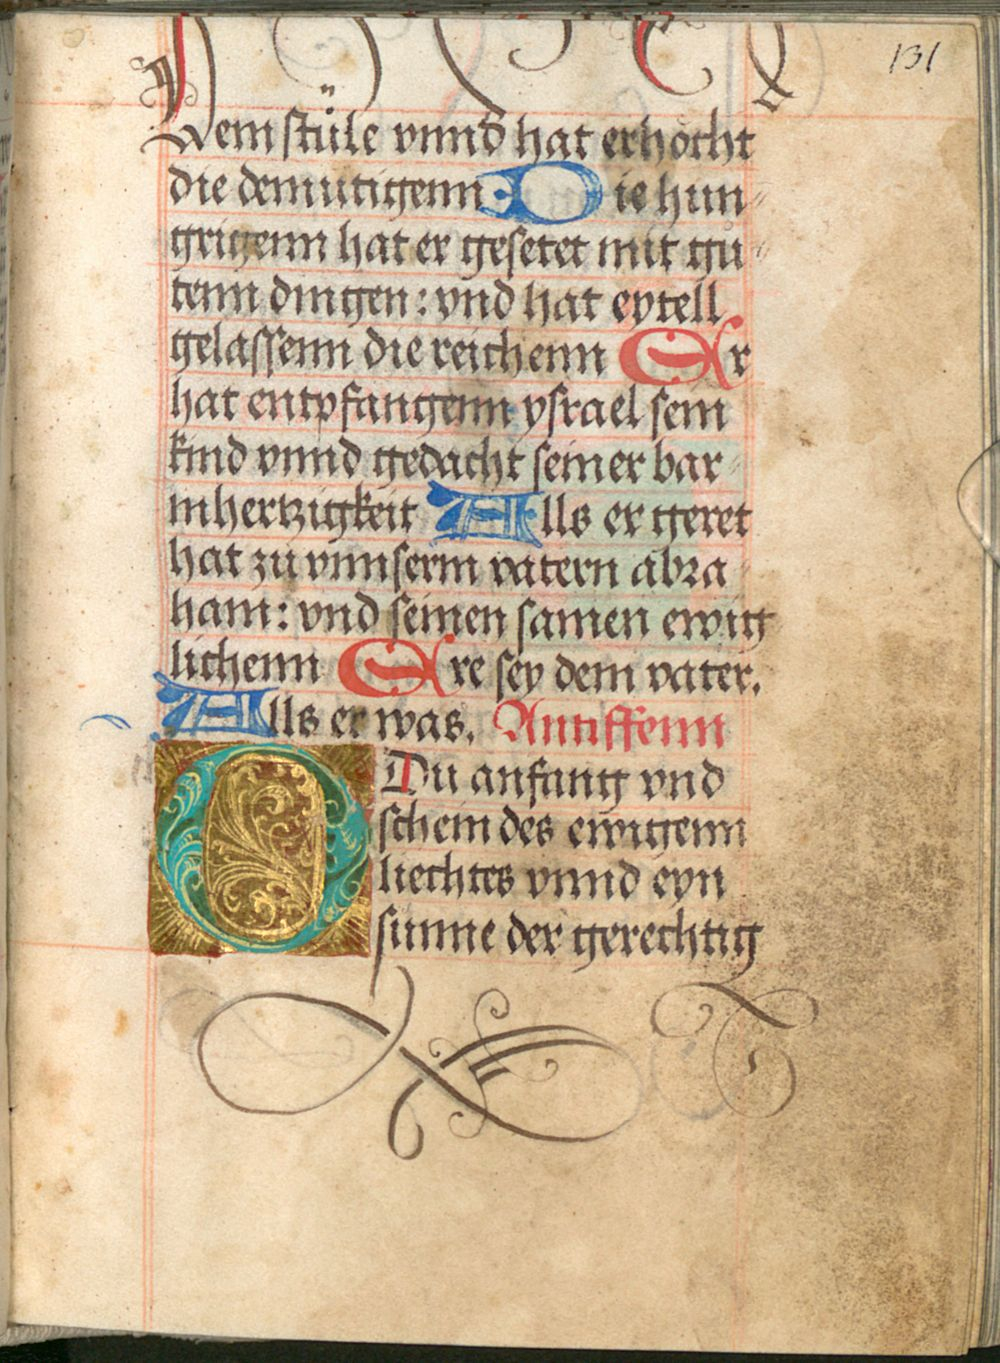 131
dem stüle vnnd hat erhöcht
die demutigenn Die hun
grigenn hat er gesetet mit gu
tenn dingen: vnd hat eytell
gelassenn die reichenn Er
hat entpfangenn ysrael sein
kind vnnd gedacht seiner bar
mhertzigkeit Alls er geret
hat zu vnnserm vatern abra
ham: vnd seinen samen ewig
lichenn Ere sey dem vater.
Alls er was. Antiffenn
O Du anfang vnd
schein des ewigenn
liechtes vnnd eyn
sunne der gerechtig